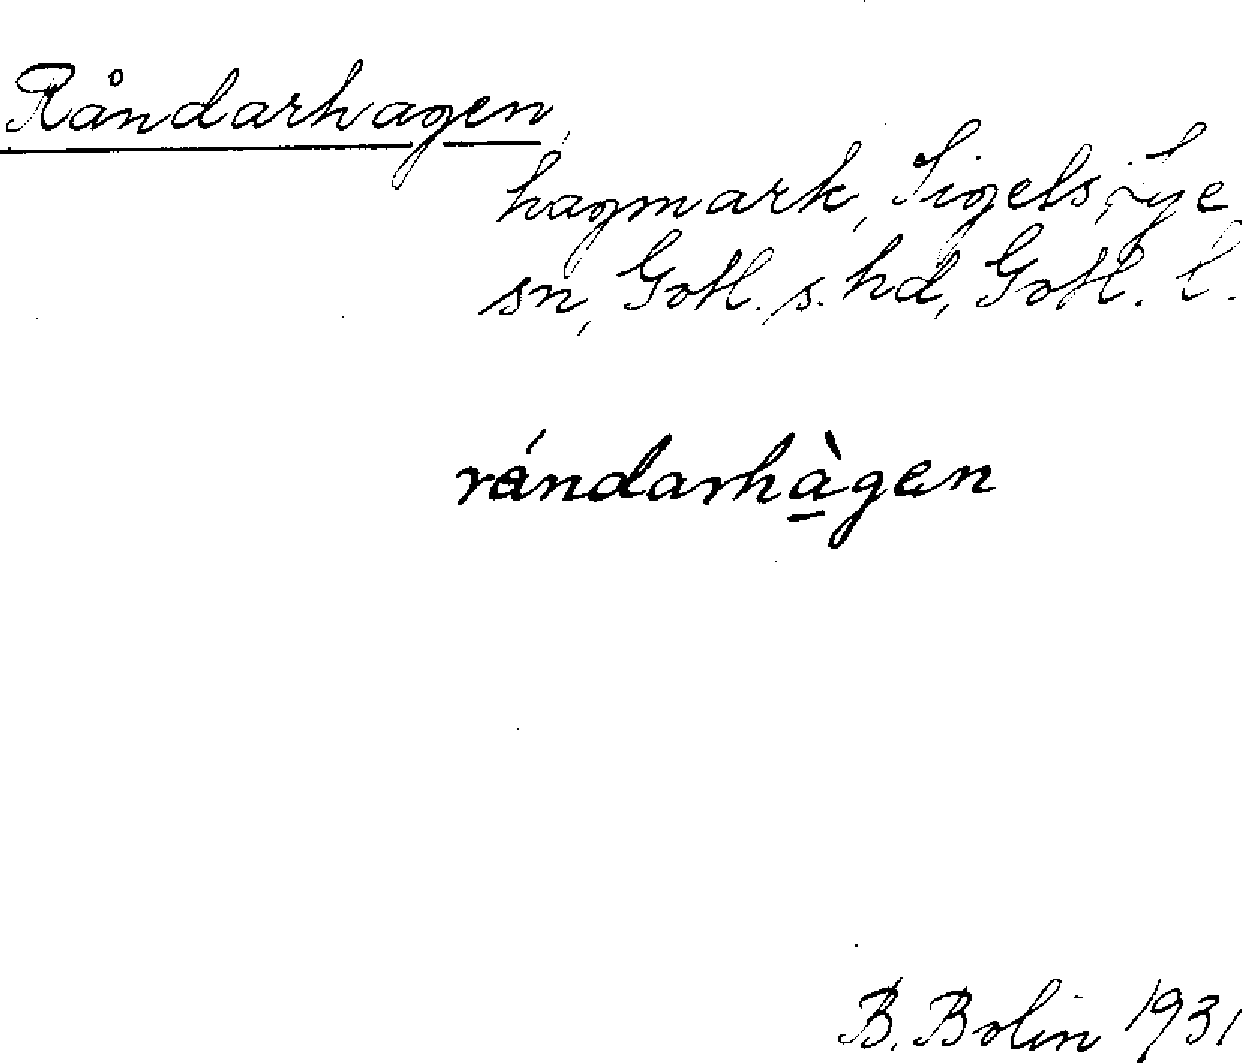 Råndarhagen,
hagmark, Sigels, Lye
sn, Gotl. s. hd, Gotl. l.
rándarhà̲gen
B. Bolin 1931